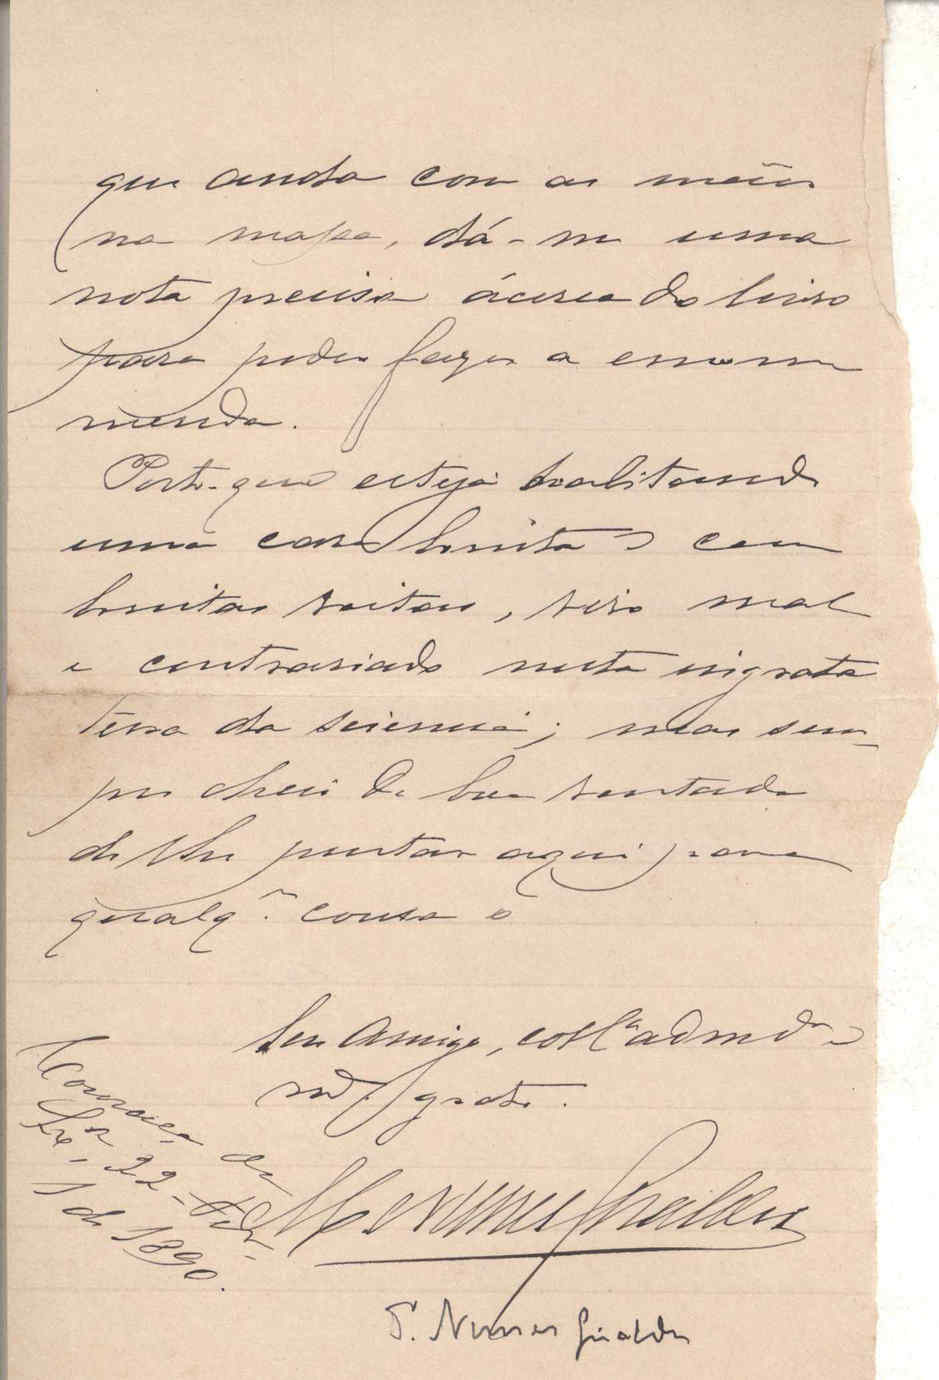 que anda com as mãos
na massa, dá-me uma
nota precisa ácerca do livro
para poder fazer a encom
menda.
Posto-que esteja habitando
uma casa bonita e com
bonitas vistas, vivo mal
e contrariado nesta ingrata
terra da sciencia; mas sem-
pre cheio de boa vontade
de lhe prestar aqui para
qualqr. cousa o
Seu Amigo, colla admdor e
grato.
Couraça de
Lxa, 22-Fevr.
de 1890.
Nunes Giraldes
Nunes Giraldes